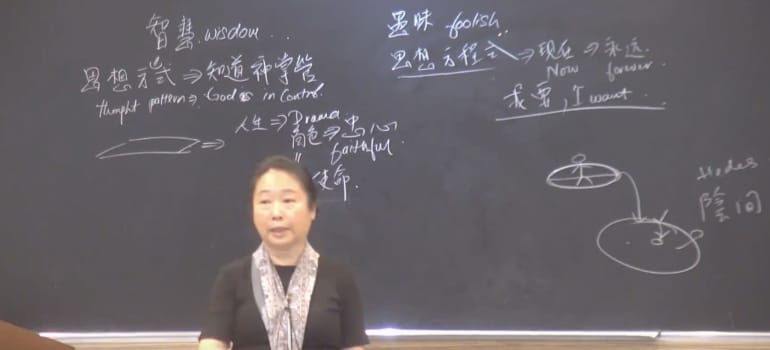 智慧 wisdom...
思想方式 ⇒ 知道神掌管
thought pattern ⇒ God is in control.
⇒ 人生 ⇒ Drama
角色 ⇒ 忠心
" faithful
使命.
愚昧 foolish.
思想方程式 ⇒ 现在 ⇒ 永远.
Now forever.
我要, I want.
Hades
陰间